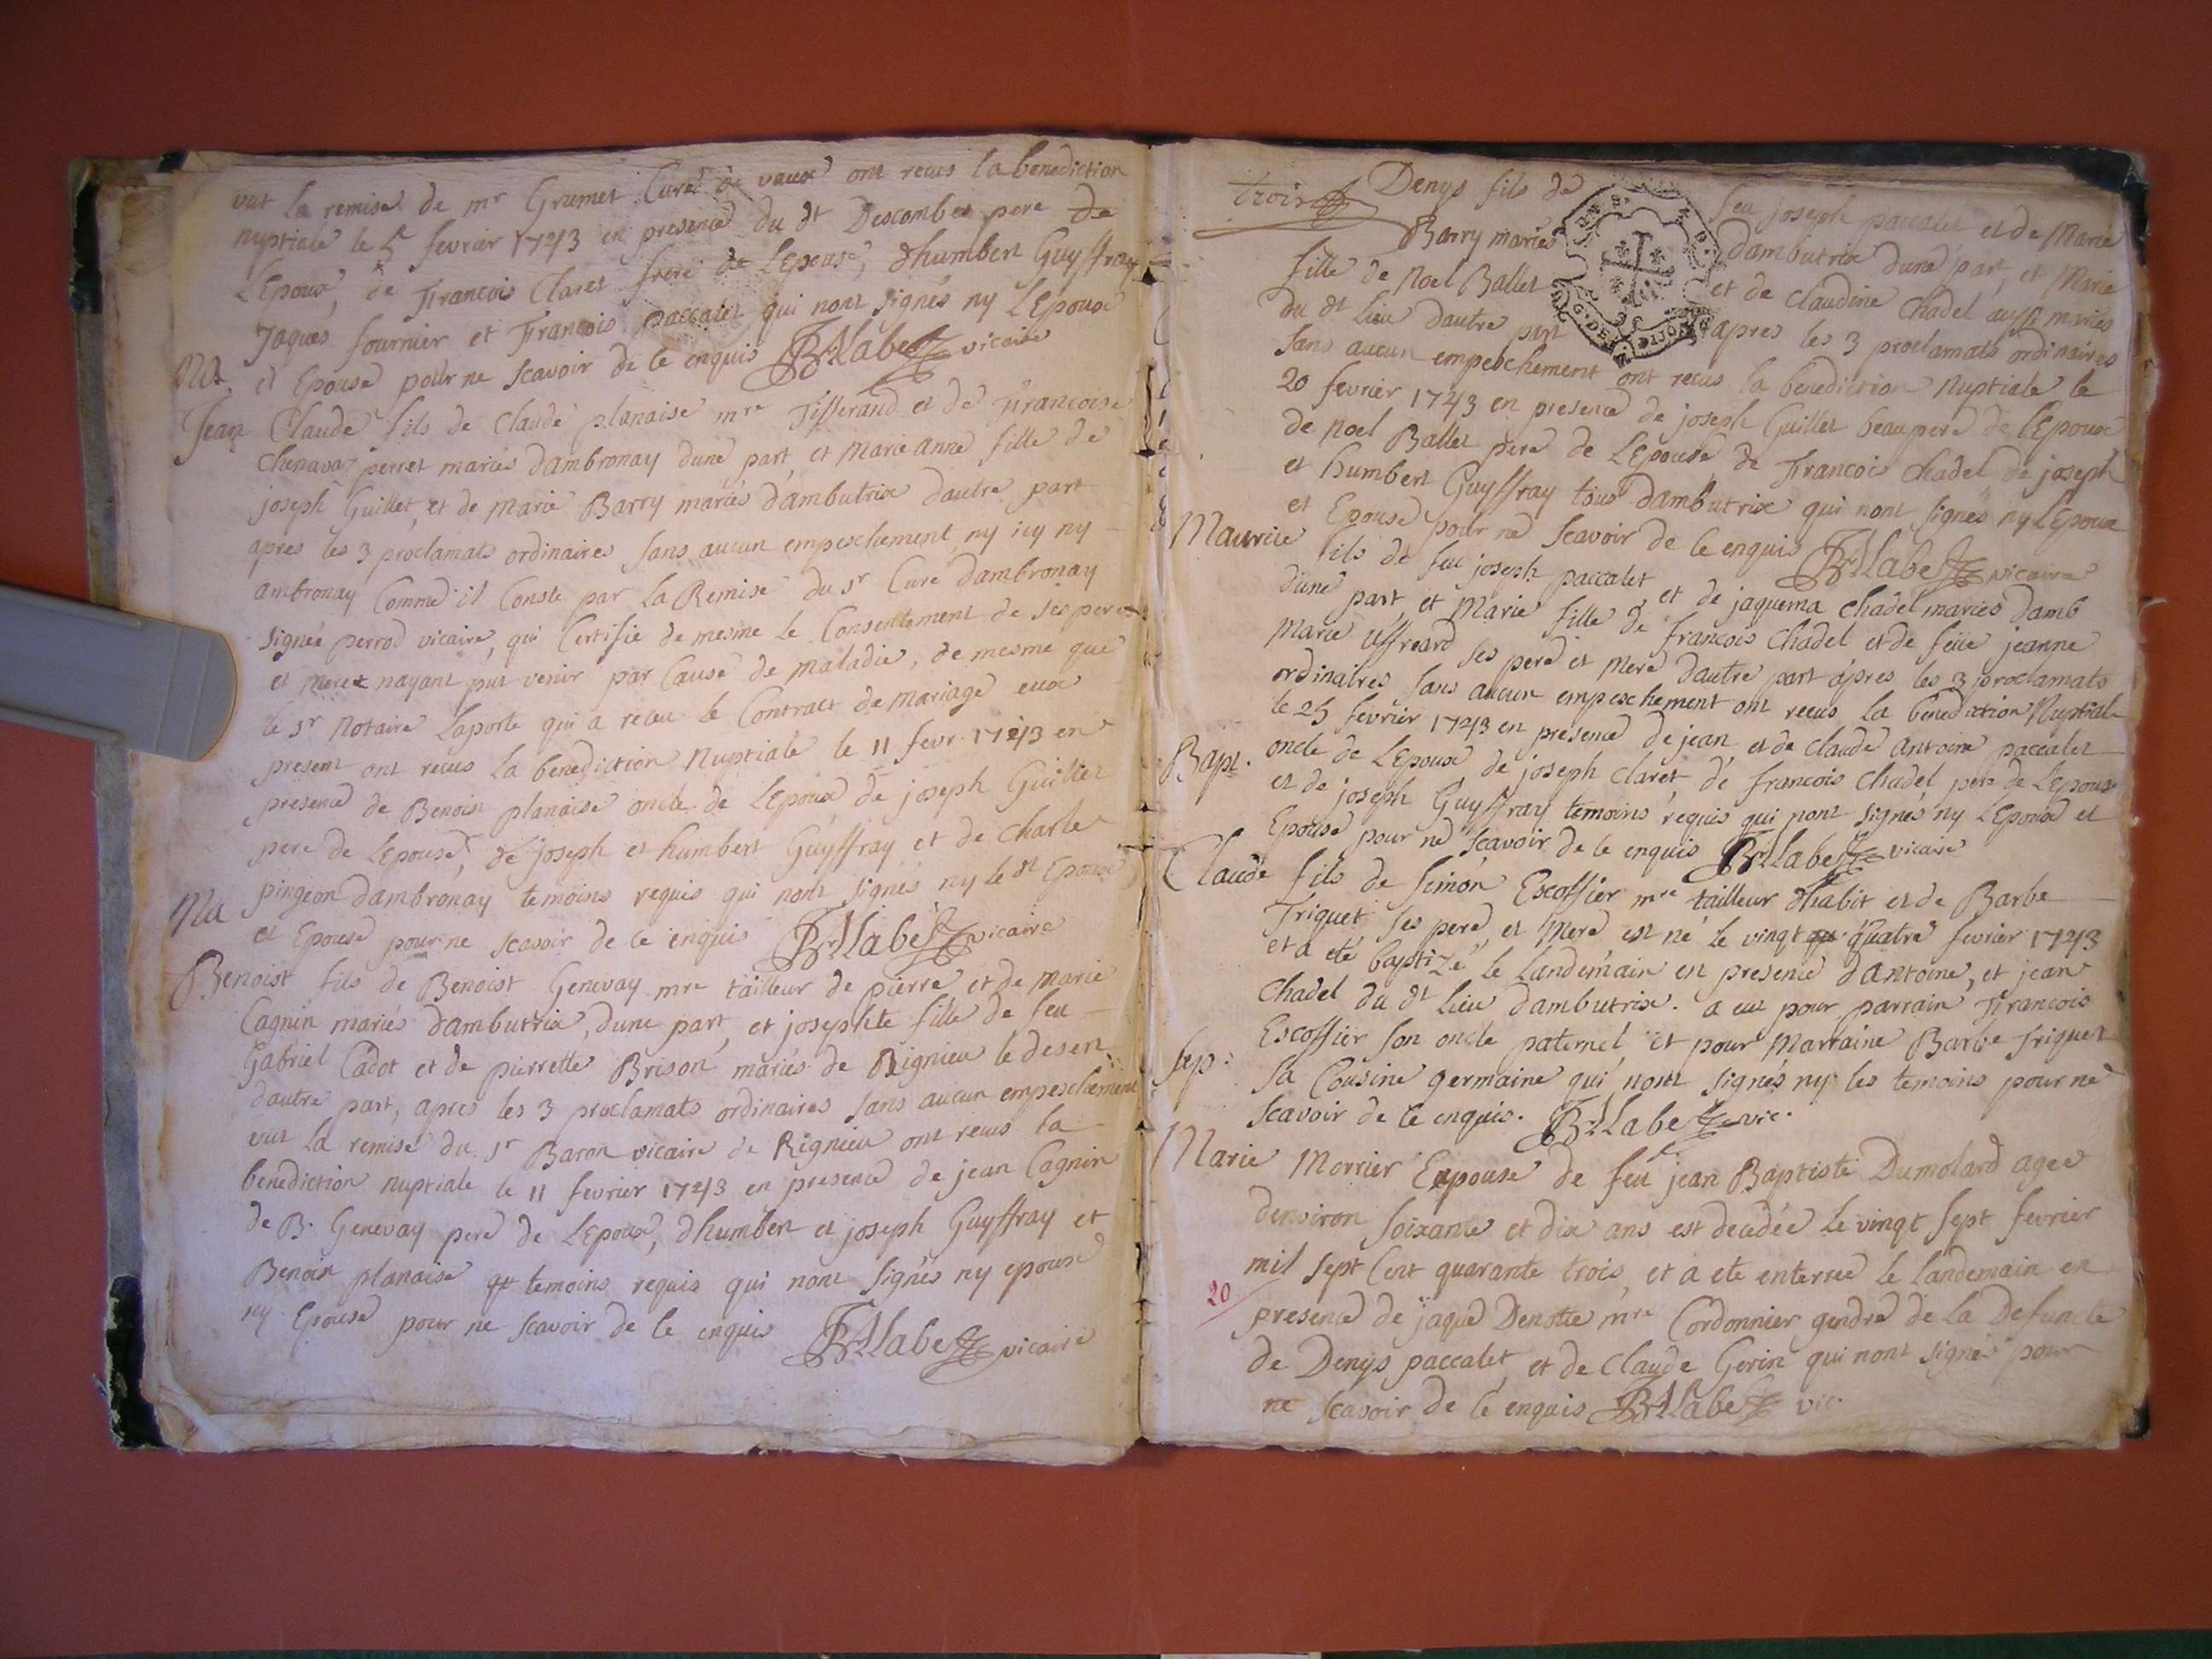 vut la remise de mr Grumet Curé de vaux ont recus la benediction
nuptiale le 5 fevrier 1743 en presence du dt Descombes pere de
L'Epoux, de Francois Claret frere de L'Epouse, dhumbert Guyffray
Jaques fournier et Francois paccalet qui nont signés ny L'Epoux
et Epouse pour ne scavoir de ce enquis BrLabe vicaire
Ma
Jean Claude fils de Claude planaise mre Tisserand et de Francoise
Chenavaz perret mariés d'ambronay dune part, et Marie anne fille de
joseph Guillet, et de Marie Barry mariés d'ambutrix dautre part
apres les 3 proclamats ordinaires sans aucun empeschement ny icy ny
ambronay Comme il Conste par La Remise du sr Curé d'ambronay
signée perrod vicaire, qui Certifie de mesme le Consentement de ses pere
et mere nayant put venir par Cause de maladie, de mesme que
le sr Notaire Laporte qui a receu le Contract de mariage eux
present ont recus La benediction Nuptiale le 11 fevr. 1743 en
presence de Benoist planaise oncle de L'Epoux de joseph Guillet
pere de L'Epouse, de joseph et humbert Guyffray et de Charle
pingeon d'ambronay temoins requis qui nont signés ny le dt Epoux
et Epouse pour ne scavoir de ce enquis BrLabe vicaire
Ma
Benoist fils de Benoist Genevay mre tailleur de pierre et de marie
Cagnin mariés d'ambutrix, dune part, et josephte fille de feu
Gabriel Cadot et de pierrette Brison mariés de Rignieu le desert
dautre part, apres les 3 proclamats ordinaires sans aucun empeschement
vut la remise du sr Baron vicaire de Rignieu ont recus la
benediction nuptiale le 11 fevrier 1743 en presence de jean Cagnin
de B. Genevay pere de L'Epoux, dhumbert et joseph Guyffray et
Benoist planaise temoins requis qui nont signés ny epoux
ny Epouse pour ne scavoir de ce enquis BrLabe vicaire
trois Denys fils de feu joseph paccalet et de Marie
Barry mariés dambutrix dune part, et Marie
fille de Noel Ballet et de Claudine Chadel aussi mariés
du dt Lieu dautre part apres les 3 proclamats ordinaires
sans aucun empeschement ont recus la benediction Nuptiale le
20 fevrier 1743 en presence de joseph Guillet beaupere de l'Epoux
de Noel Ballet pere de L'Epouse de Francois Chadel de joseph
et humbert Guyffray tous d'ambutrix qui nont signés ny L'Epoux
et Epouse pour ne scavoir de ce enquis BrLabe vicaire
Maurice fils de feu joseph paccalet, et de jaquema Chadel mariés damb
dune part, et Marie fille de francois Chadel et de feüe jeanne
Marie Uffreard ses pere et Mere dautre part apres les 3 proclamats
ordinaires sans aucun empeschement ont recus la benediction Nuptial
le 25 fevrier 1743 en presence de jean et de Claude Antoine paccalet
oncle de L'Epoux de joseph Claret, de francois Chadel pere de L'Epouse
et de joseph Guyffray temoins requis qui nont signés ny L'Epoux et
Epouse pour ne scavoir de ce enquis BrLabe vicaire
Bapt.
Claude fils de Simon Escoffier mre tailleur d'habit et de Barbe
Friquet ses pere, et Mere est né le vingt quatre fevrier 1743
et a eté baptizé le Landemain en presence d'Antoine, et jean
Chadel du dt Lieu d'ambutrix. a eut pour parrain Francois
Escoffier son oncle paternel et pour Marraine Barbe friquet
sa Cousine germaine qui nont signés ny les temoins pour ne
scavoir de ce enquis. BrLabe vic.
Sep:
Marie Morrier Epouse de feu jean Baptiste Dumolard agee
denviron soixante et dix ans est decedée le vingt sept fevrier
mil sept Cent quarante trois, et a ete enterree le Landemain en
20
presence de jaque Denotte mre Cordonnier gendre de la Defuncte
de Denys paccalet, et de Claude Gerin qui nont signés pour
ne scavoir de ce enquis BrLabe vic.